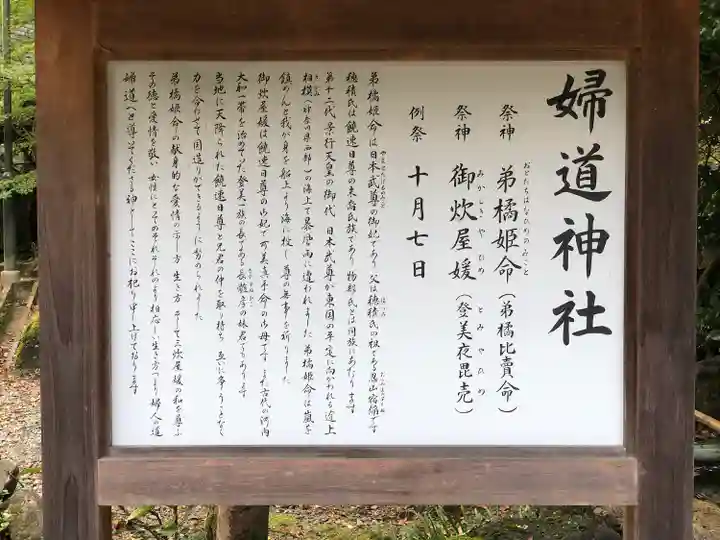 婦道神社
祭神 弟橘姫命(弟橘比賣命)
おとたちばなひめのみこと
祭神 御炊屋媛(登美夜毘売)
みかしきやひめ とみやひめ
例祭 十月七日
弟橘姫命は日本武尊の御妃であり 父は穂積氏の祖である忍山宿禰です
穂積氏は饒速日尊の末裔氏族であり 物部氏とは同族にあたります
第十二代 景行天皇の御代 日本武尊が東国の平定に向かわれる途上
相模(神奈の県西部)の海上で暴風雨に遭われました 弟橘姫命は嵐を
鎮めんと我が身を船上より海に投じ 尊の無事を祈りました
御炊屋媛は饒速日尊の御妃で 可美真手命の御母です また古代の河内
大和一帯を治めていた登美一族の長である長髄彦の妹君でもあります
当地に天降られた饒速日尊と兄君の仲を取り持ち 互いに争うことなく
力を合わせて国造りができるように努められました
弟橘姫命の献身的な愛情の示し方 生き方 そして三炊屋媛の和を尊ぶ
その徳と愛情を敬い 女性にとってのそれぞれのより相応しい生き方つまり婦人の道
婦道へと導いてくださる神としてここにお祀り申し上げております